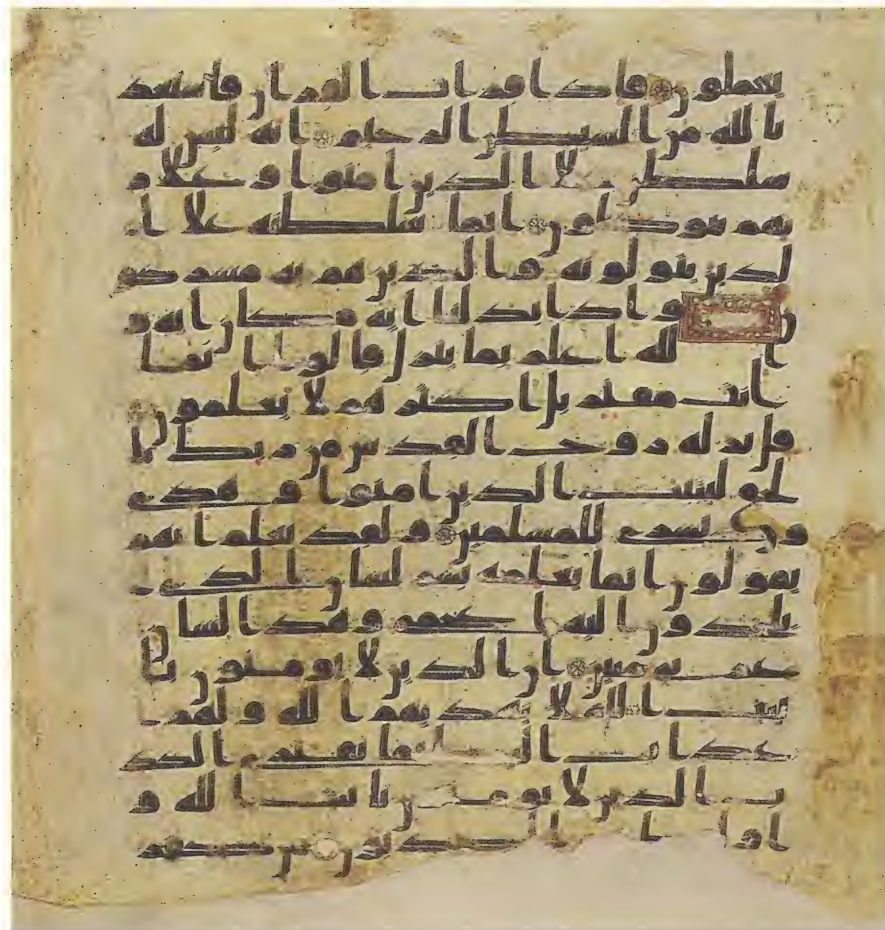 يعملون فاذا قرات القران فاستعذ
بالله من الشيطن الرجيم انه ليس له
سلطن علا الذين امنوا وعلا ر
بهم يتوكلون انما سلطنه علا ا
لذين يتولونه والذين هم به مشركو
ن واذا بدلنا اية مكان اية و
الله اعلم بما ينزل قالوا انما
انت مفتر بل اكثرهم لا يعلمون
قل نزله روح القدس من ربك با
لحق ليثبت الذين امنوا وهدى
وبشرى للمسلمين ولقد نعلم انهم
يقولون انما يعلمه بشر لسان الذى
يلحدون اليه اعجمى وهذا لسان
عربى مبين ان الذين لا يومنون با
يت الله لا يهديهم الله ولهم
عذاب اليم انما يفترى الكذ
ب الذين لا يومنون بايت الله و
الكذبون من كفر